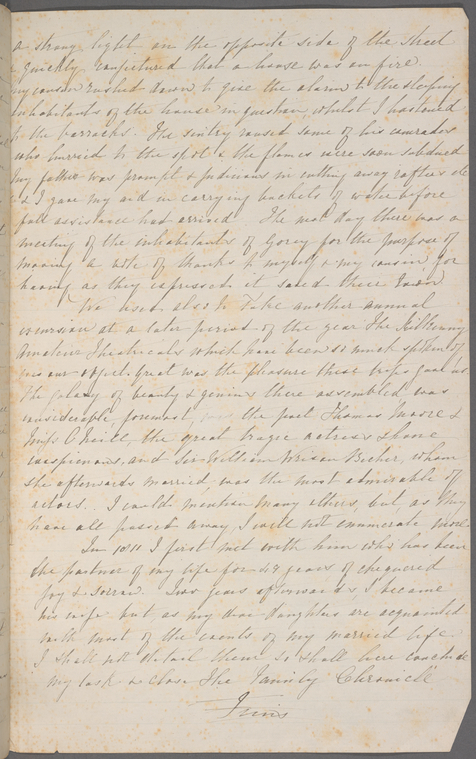 a strong light on the opposite side of the street
quickly conjectured that a house was on fire.
my cousin rushed down to give the alarm to the sleeping
inhabitants of the house in question, whilst I hastened
to the barracks. The sentry roused some of his comrades
who hurried to the spot & the flames were soon subdued
my father was prompt & judicious in cutting away rafters etc
& I gave my aid in carrying buckets of water before
full assistance had arrived. The next day there was a
meeting of the inhabitants of Gorey for the purpose of
moving a vote of thanks to myself & my cousin for
having as they expressed it saved their town
We used also to take another annual
excursion at a later period of the year The Kilkenny
Amateur Theatricals which have been so much spoken of
was our object. Great was the pleasure these trips gave us
The galaxy of beauty & genius there assembled was
considerable, foremost, the poet Thomas Moore &
Miss O'Neill, the great tragic actress shone
conspicuous, and Sir William Wrixon Becher, whom
she afterwards married, was the most admirable of
actors. I could mention many others, but, as they
have all passed away, I will not enumerate more.
In 1811 I first met with him who has been
the partner of my life for 49 years of chequered
joy & sorrow. Two years afterwards, I became
his wife but, as my dear daughters are acquainted
with most of the events of my married life
I shall not detail them, so shall here conclude
my task & close The Family Chronicle
Finis